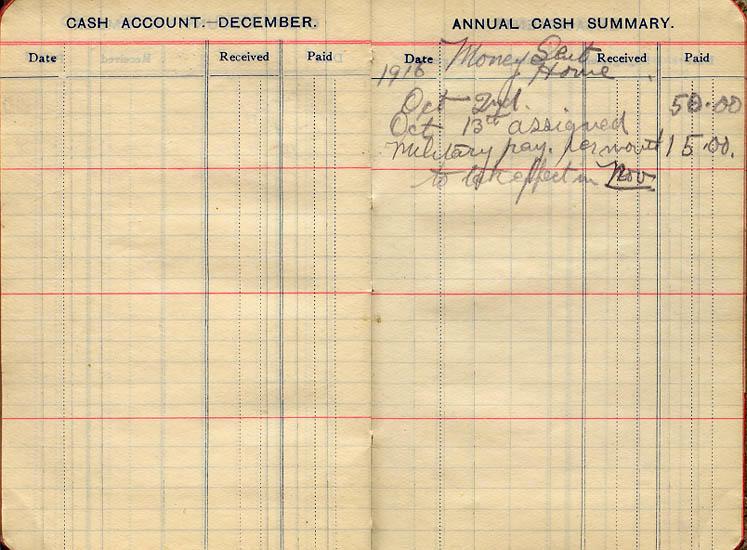 CASH ACCOUNT.—DECEMBER.
Date Received Paid
ANNUAL CASH SUMMARY.
Date Received Paid
Money Sent
1916 Home.
Oct 2nd. 50.00
Oct 13th assigned
Military pay. per month 15.00.
to take effect in Nov